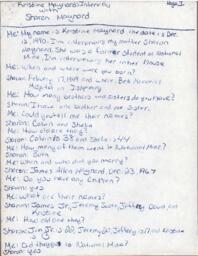 Kristine Maynard's Interview Page 1
with
Sharon Maynard
Me: My name is Kristine Maynard. The date is Dec.
12, 1990. I'm interviewing my mother Sharon
Maynard. She was a former student at National
Mine. I'm interviewing her in her house.
Me: When and where were you born?
Sharon: February 17, 1949 and where Bell Memorial
Hospital in Ishpeming
Me: How many brothers and sisters do you have?
Sharon: I have one brother and one sister.
Me: Could you tell me their names?
Sharon: Calvin and Sheila
Me: How old are they?
Sharon: Calvin is 33 and Sheila is 44
Me: How many of them went to National Mine?
Sharon: Both
Me: When and who did you marry?
Sharon: James Allen Maynard, Dec. 23, 1967
Me: Do you have any children?
Sharon: yes
Me: What are their names?
Sharon: James Jr., Jeremy Scott, Jeffery David, and
Kristine
Me: How old are they?
Sharon: Jim Jr. is 22, Jeremy 20, Jeffery and Kristine
Me: Did they go to National Mine?
Sharon: yes